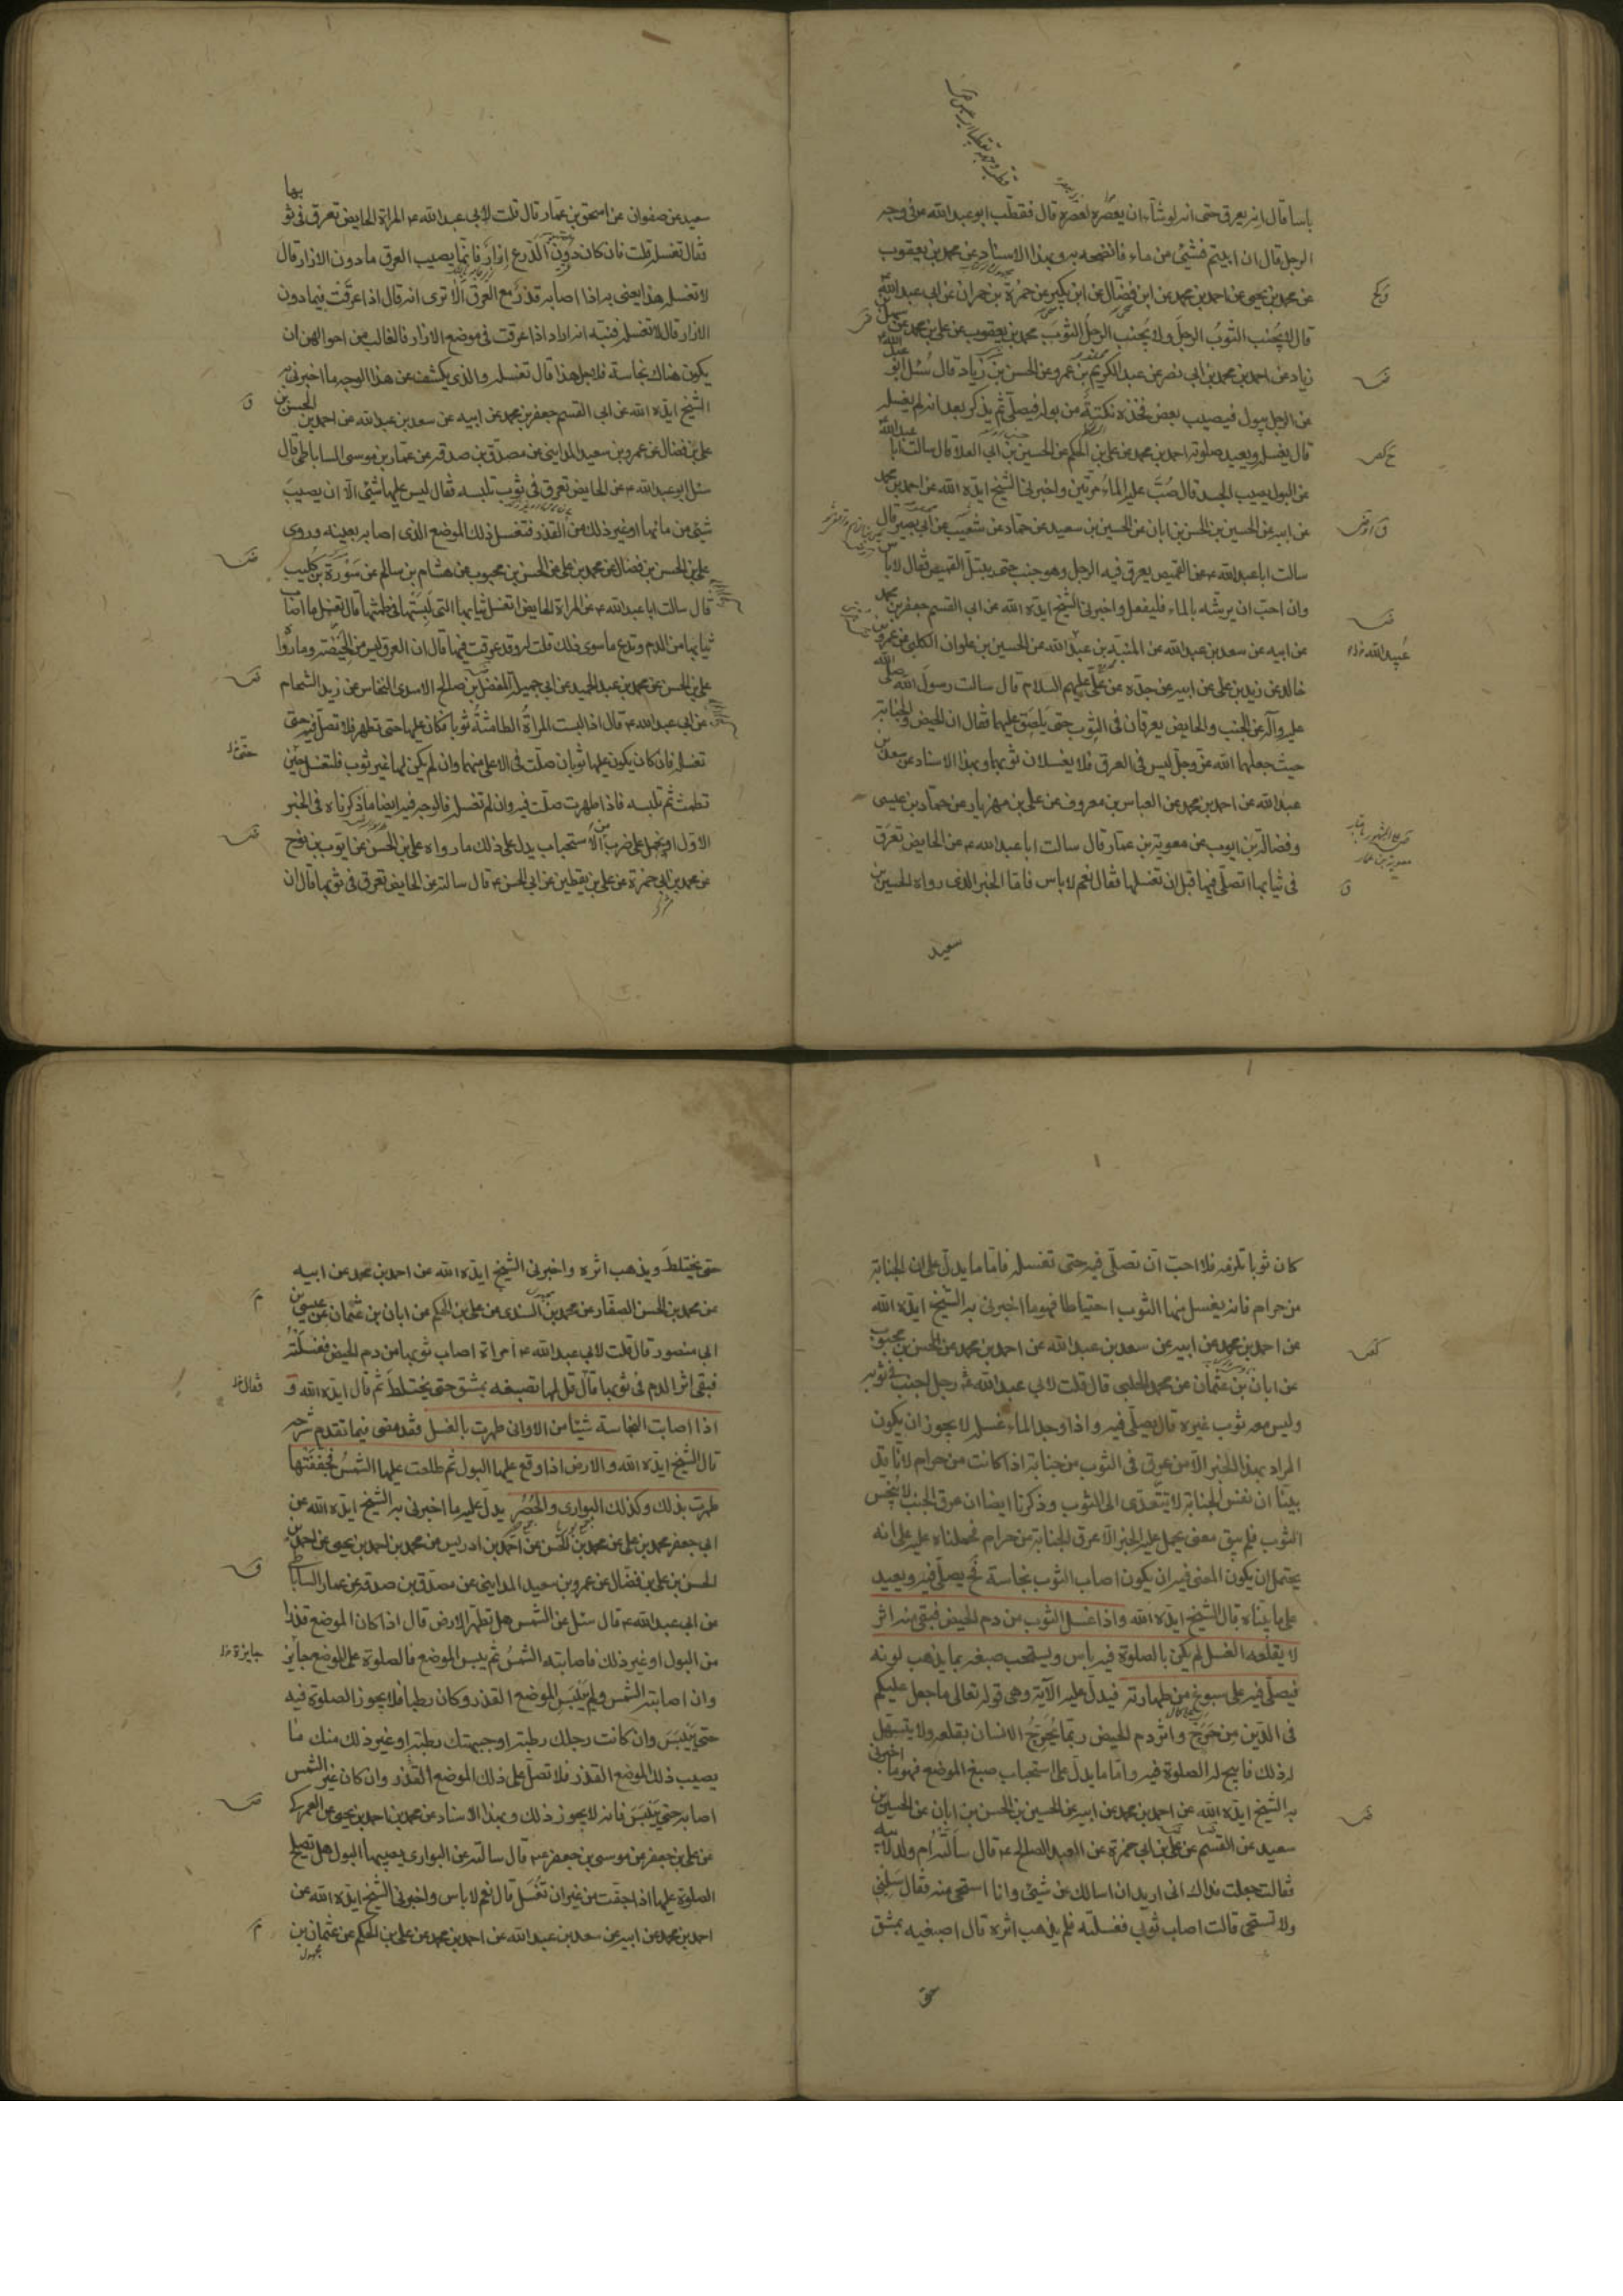 باسا قال انه يعرق حتى انه لو شاء ان يعصره لعصره قال فقطب ابو عبد الله ع فى وجه
الرجل قال ان ابيتم فشئ من ماء فانضحه به وبهذا الاسناد عن محمد بن يعقوب
عن محمد بن يحيى عن احمد بن محمد عن ابن فضال عن ابن بكير عن حمزة بن حمران عن ابى عبد الله ع
قال لا يجنب الثوب الرجل ولا يجنب الرجل الثوب محمد بن يعقوب عن على بن محمد عن سهل بن
زياد عن احمد بن محمد بن ابى نصر عن عبد الكريم بن عمرو عن الحسن بن زياد قال سئل ابو عبد الله ع
عن الرجل يبول فيصيب بعض فخذه نكتة من بوله فيصلى ثم يذكر بعد انه لم يغسله
قال يغسله ويعيد صلوته احمد بن محمد عن على بن الحكم عن الحسين بن ابى العلا قال سالت ابا عبد الله ع
عن البول يصيب الجسد قال صب عليه الماء مرتين واخبرنى الشيخ ايده الله عن احمد بن محمد
عن ابيه عن الحسين بن الحسن بن ابان عن الحسين بن سعيد عن حماد عن شعيب عن ابى بصير قال
سالت ابا عبد الله ع عن القميص يعرق فيه الرجل وهو جنب حتى يبتل القميص فقال لا باس
وان احب ان يرشه بالماء فليفعل واخبرنى الشيخ ايده الله عن ابى القسم جعفر بن محمد
عن ابيه عن سعد بن عبد الله عن المنبه بن عبد الله عن الحسين بن علوان الكلبى عن عمرو بن
خالد عن زيد بن على عن ابيه عن جده عن على عليهم السلام قال سالت رسول الله صلى الله
عليه وآله عن الجنب والحايض يعرقان فى الثوب حتى يلصق عليهما فقال ان الحيض والجنابة
حيث جعلهما الله عز وجل ليس فى العرق فلا يغسلان ثوبهما وبهذا الاسناد عن سعد بن
عبد الله عن احمد بن محمد عن العباس بن معروف عن على بن مهزيار عن حماد بن عيسى
وفضالة بن ايوب عن معوية بن عمار قال سالت ابا عبد الله ع عن الحايض تعرق
فى ثيابها اتصلى فيها قبل ان تغسلها فقال نعم لا باس فاما الخبر الذى رواه الحسين بن
سعيد
عبيد الله
معوية بن عمار
بها
سعيد عن صفوان عن اسحق بن عمار قال قلت لابى عبد الله ع المراة الحايض تعرق فى ثو
فقال تغسله قلت فان كان دون الدرع ازار فانما يصيب العرق ما دون الازار قال
لا تغسله هذا يعنى به اذا اصابه قذر مع العرق الا ترى انه قال اذا عرقت فيما دون
الازار قال لا تغسله فنبه انه اراد اذا عرقت فى موضع الازار فالغالب من احوالهن ان
يكون هناك نجاسة فلاجل هذا قال تغسله والذى يكشف عن هذا الوجه ما اخبرنى به
الشيخ ايده الله عن ابى القسم جعفر بن محمد عن ابيه عن سعد بن عبد الله عن احمد بن الحسن بن
على بن فضال عن عمرو بن سعيد المداينى عن مصدق بن صدقة عن عمار بن موسى الساباطى قال
سئل ابو عبد الله ع عن الحايض تعرق فى ثوب تلبسه فقال ليس عليها شئ الا ان يصيب
شئ من مائها او غير ذلك من القذر فتغسل ذلك الموضع الذى اصابه بعينه وروى
على بن الحسن بن فضال عن محمد بن على عن الحسن بن محبوب عن هشام بن سالم عن سورة بن كليب
قال سالت ابا عبد الله ع عن المراة الحايض اتغسل ثيابها التى لبستها فى طمثها قال تغسل ما اصاب
ثيابها من الدم وتدع ما سوى ذلك قلت له وقد عرقت فيها قال ان العرق ليس من الحيضة وما رواه
على بن الحسن عن محمد بن عبد الحميد عن ابى جميلة المفضل بن صالح الاسدى النخاس عن زيد الشحام
عن ابى عبد الله ع قال اذا لبست المراة الطامثة ثوبا فكان عليها حتى تطهر فلا تصل فيه حتى
تغسله فان كان يكون عليها ثوبان صلت فى الاعلى منهما وان لم يكن لها غير ثوب فلتغسله حين
تطمث ثم تلبسه فاذا طهرت صلت فيه وان لم تغسله فالوجه فيه ايضا ما ذكرناه فى الخبر
الاول او نحمل على ضرب من الاستحباب يدل على ذلك ما رواه على بن الحسن عن ايوب بن نوح
عن محمد بن ابى حمزة عن على بن يقطين عن ابى الحسن ع قال سالته عن الحايض تعرق فى ثوبها قال ان
كان ثوبا تلزمه فلا احب ان تصلى فيه حتى تغسله فاما ما يدل على ان الجنابة
من حرام فانه يغسل منها الثوب احتياطا فهو ما اخبرنى به الشيخ ايده الله
عن احمد بن محمد عن ابيه عن سعد بن عبد الله عن احمد بن محمد عن الحسن بن محبوب
عن ابان بن عثمان عن محمد الحلبى قال قلت لابى عبد الله ع رجل اجنب فى ثوبه
وليس معه ثوب غيره قال يصلى فيه واذا وجد الماء غسله لا يجوز ان يكون
المراد بهذا الخبر الا من عرق فى الثوب من جنابة اذا كانت من حرام لانا قد
بينا ان نفس الجنابة لا يتعدى الى الثوب وذكرنا ايضا ان عرق الجنب لا ينجس
الثوب فلم يبق معنى يحمل عليه الخبر الا عرق الجنابة من حرام فحملناه عليه على انه
يحتمل ان يكون المعنى فيه ان يكون اصاب الثوب نجاسة فح يصلى فيه ويعيد
على ما بيناه قال الشيخ ايده الله واذا غسل الثوب من دم الحيض فبقى منه اثر
لا يقلعه الغسل لم يكن بالصلوة فيه باس ويستحب صبغه بما يذهب لونه
فيصلى فيه على سبوغ من طهارته فيدل عليه الآية وهى قوله تعالى ما جعل عليكم
فى الدين من حرج واثر دم الحيض ربما يحرج الانسان بقلعه ولا يتسهل
له ذلك فابيح له الصلوة فيه واما ما يدل على استحباب صبغ الموضع فهو ما اخبرنى
به الشيخ ايده الله عن احمد بن محمد عن ابيه عن الحسين بن الحسن بن ابان عن الحسين بن
سعيد عن القسم عن على بن ابى حمزة عن العبد الصالح ع قال سالته ام ولد لابيه
فقالت جعلت فداك انى اريد ان اسالك عن شئ وانا استحى منه فقال سلينى
ولا تستحى قالت اصاب ثوبى فغسلته فلم يذهب اثره قال اصبغيه بمشق
حتى يختلط ويذهب اثره واخبرنى الشيخ ايده الله عن احمد بن محمد عن ابيه
عن محمد بن الحسن الصفار عن محمد بن السندى عن على بن الحكم عن ابان بن عثمان عن عيسى بن
ابى منصور قال قلت لابى عبد الله ع امراة اصاب ثوبها من دم الحيض فغسلته
فبقى اثر الدم فى ثوبها قال قل لها تصبغه بمشق حتى يختلط ثم قال ايده الله و
اذا اصابت النجاسة شيئا من الاوانى طهرت بالغسل فقد مضى فيما تقدم شرحه
قال الشيخ ايده الله والارض اذا وقع عليها البول ثم طلعت عليها الشمس فجففتها
طهرت بذلك وكذلك البوارى والحصر يدل عليه ما اخبرنى به الشيخ ايده الله عن
ابى جعفر محمد بن على عن محمد بن الحسن عن احمد بن ادريس عن محمد بن احمد بن يحيى عن احمد بن
الحسن بن على بن فضال عن عمرو بن سعيد المداينى عن مصدق بن صدقة عن عمار الساباطى
عن ابى عبد الله ع قال سئل عن الشمس هل تطهر الارض قال اذا كان الموضع قذرا
من البول او غير ذلك فاصابته الشمس ثم يبس الموضع فالصلوة على الموضع جايز
وان اصابته الشمس ولم ييبس الموضع القذر وكان رطبا فلا يجوز الصلوة فيه
حتى ييبس وان كانت رجلك رطبة او جبهتك رطبة او غير ذلك منك ما
يصيب ذلك الموضع القذر فلا تصل على ذلك الموضع القذر وان كان غير الشمس
اصابه حتى ييبس فانه لا يجوز ذلك وبهذا الاسناد عن محمد بن احمد بن يحيى عن العمركى
عن على بن جعفر عن موسى بن جعفر ع قال سالته عن البوارى يصيبها البول هل تصلح
الصلوة عليها اذا جفت من غير ان تغسل قال نعم لا باس واخبرنى الشيخ ايده الله عن
احمد بن محمد عن ابيه عن سعد بن عبد الله عن احمد بن محمد عن على بن الحكم عن عثمان بن